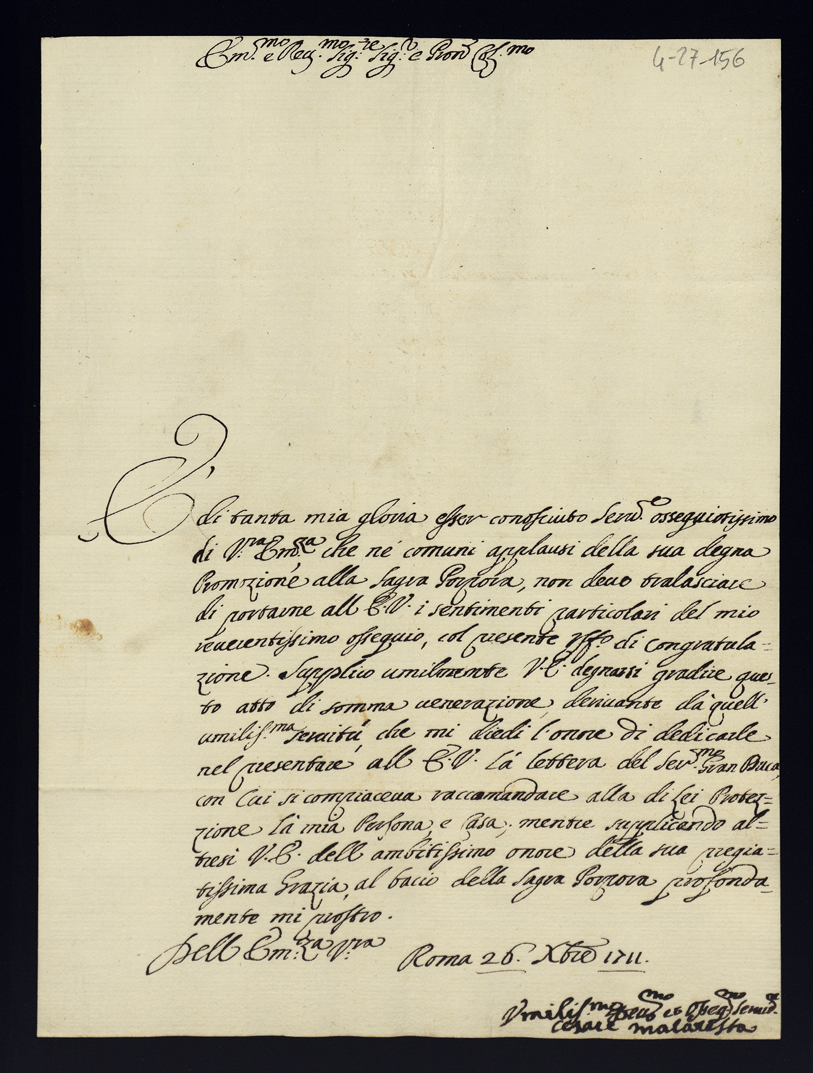 4-27-156
Em.mo e Rev.mo Sig.re Sig.r e Pron Col.mo
È di tanta mia gloria esser conosciuto Serv.e ossequiotissimo
di V.ra Em.za che né comuni applausi della sua degna
Promozione alla Sagra Porpora, non devo tralasciare
di portarne all E.V. i sentimenti particolari del mio
reverentissimo ossequio, col presente di congratula=
zione. Supplico umilmente V.E. degnarsi gradire ques=
to atto di somma venerazione, derivante da quell'
umilis.ma servitù, che mi diedi l'onore di dedicarle
nel presentare all E.V. la lettera del Ser.mo Gran Duca,
con cui si compiaceva raccomandare alla di Lei Protez=
zione la mia Persona, e Casa, mentre supplicando al=
tresi V.E. dell ambitissimo onore della sua pregia=
tissima Grazia, al bacio della Sagra Porpora profonda
mente mi prostro.
Dell Em.za V.ra Roma 26. Xbre 1711.
Vmilis.mo et Osseq.mo Servid.e
Cesare Malatesta